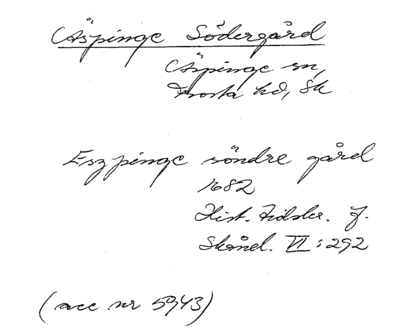 Äspinge Södergård
Äspinge sn,
Frosta hd, Sk
Eszpinge söndre gård
1682
Hist. tidskr. f.
Skånel. VI: 292
(acc nr 5943)